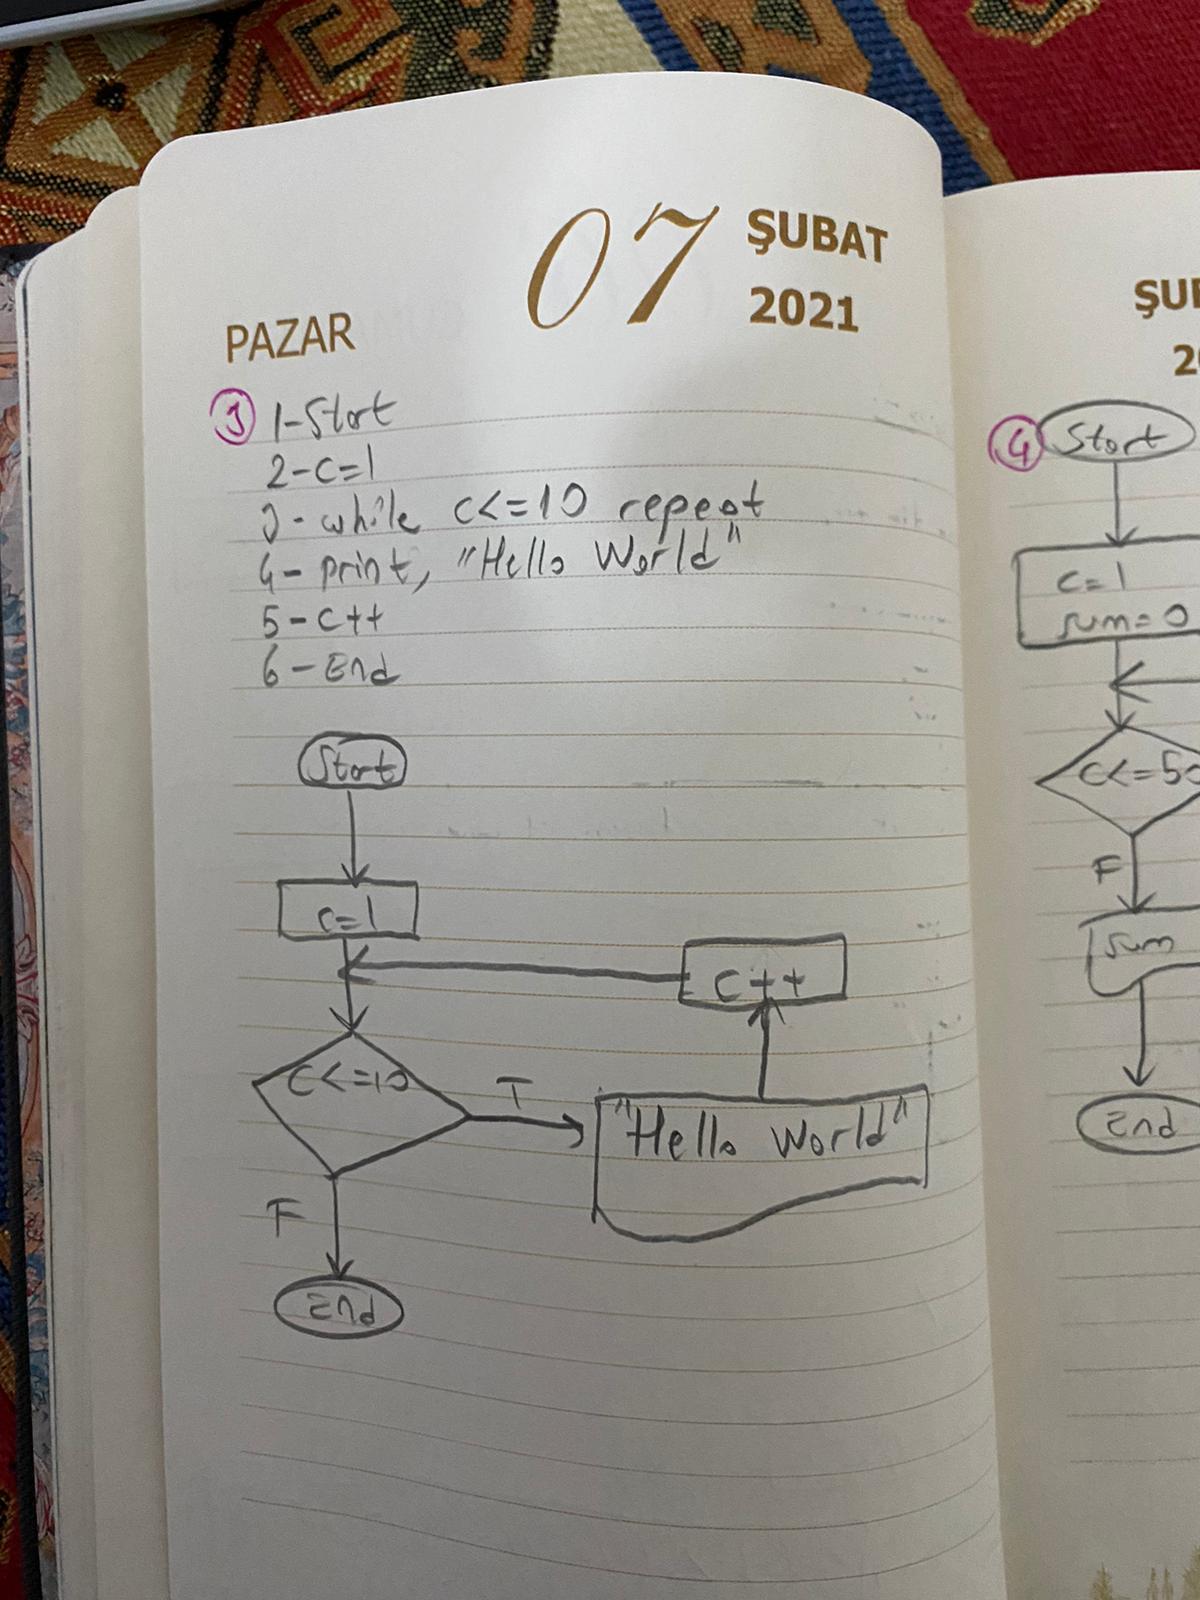 07 ŞUBAT
2021
PAZAR
3 1-Start
2-C=1
3-while C<=10 repeat
4-print, "Hello World"
5-C++
6-End
Start
C=1
C++
C<=10
T
"Hello World"
F
End
4 Start
C=1
sum=0
C<=50
F
sum
End